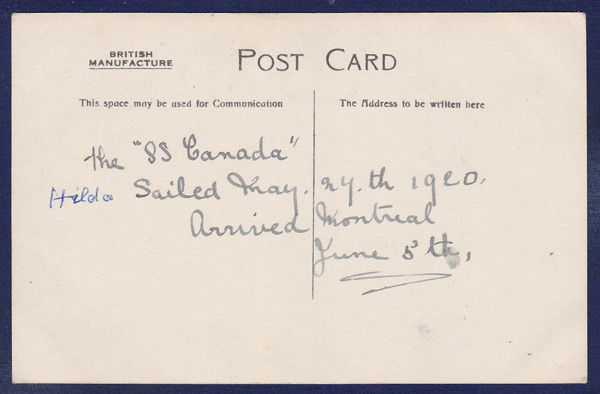 BRITISH
MANUFACTURE
POST CARD
This space may be used for Communication
The Address to be written here
the "SS Canada"
Hilda Sailed May. 27.th 1920.
Arrived Montreal
June 5th,